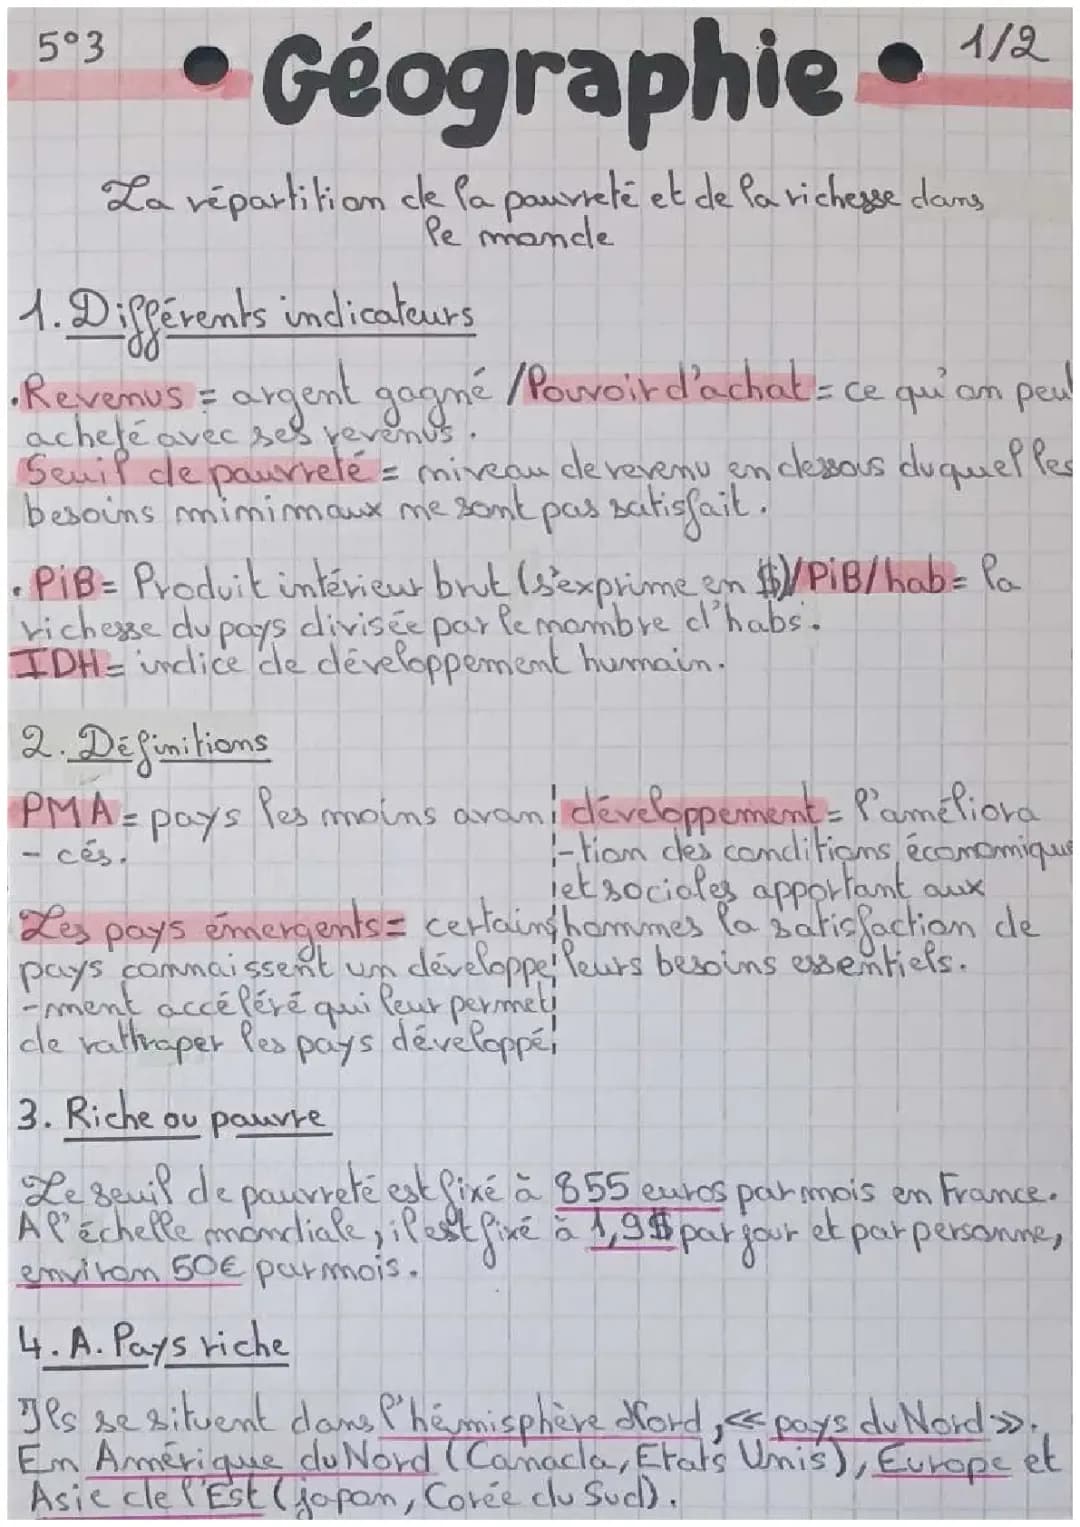 5°3
• Géographie •
1/2
La répartition de la pauvreté et de la richesse dans
le monde
1. Différents indicateurs
.Revenus = argent gagné / Pouvoir d'achat = ce qu'on peut
acheté avec ses revenus.
Seuil de pauvreté = niveau de revenu en dessous duquel les
besoins minimaux ne sont pas satisfait.
. PiB = Produit intérieur brut (s'exprime en $)/PiB/hab = la
richesse du pays divisée par le nombre d'habs.
IDH = indice de développement humain.
2. Définitions
PMA = pays les moins avan
- cés.
Les pays émergents = certains
pays connaissent un développe
-nment accéléré qui leur permet
de rattraper les pays développé
développement = l'améliora
-tion des conditions économiques
et sociales apportant aux
hommes la satisfaction de
leurs besoins essentiels.
3. Riche ou pauvre
Le seuil de pauvreté est fixé à 855 euros par mois en France.
A l'échelle mondiale, il est fixé à 1,9$ par jour et par personne,
environ 50€ par mois.
4. A. Pays riche
Ils se situent dans l'hémisphère Nord, << pays du Nord >>.
En Amérique du Nord (Canada, Etats Unis), Europe et
Asie de l'Est (japon, Corée du Sud).